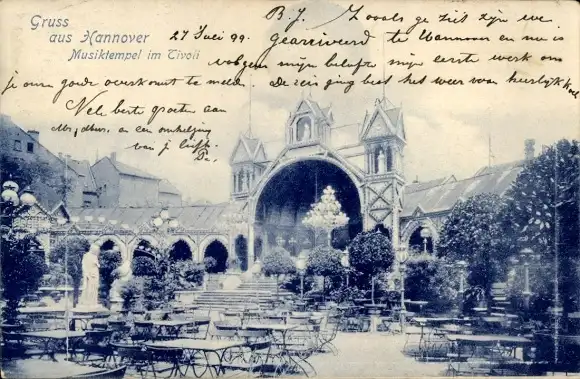 Gruss
aus Hannover
Musiktempel im Tivoli
27 Juli 99.
B. J. Zooals ge ziet zijn we
gearriveerd te Hannover en nu is
volgens mijn belofte mijn eerste werk om
jou goede overkomst te melden. De reis ging best het weer was heerlijk koel
Vele beste groeten aan
en omhelzing
van je liefh.